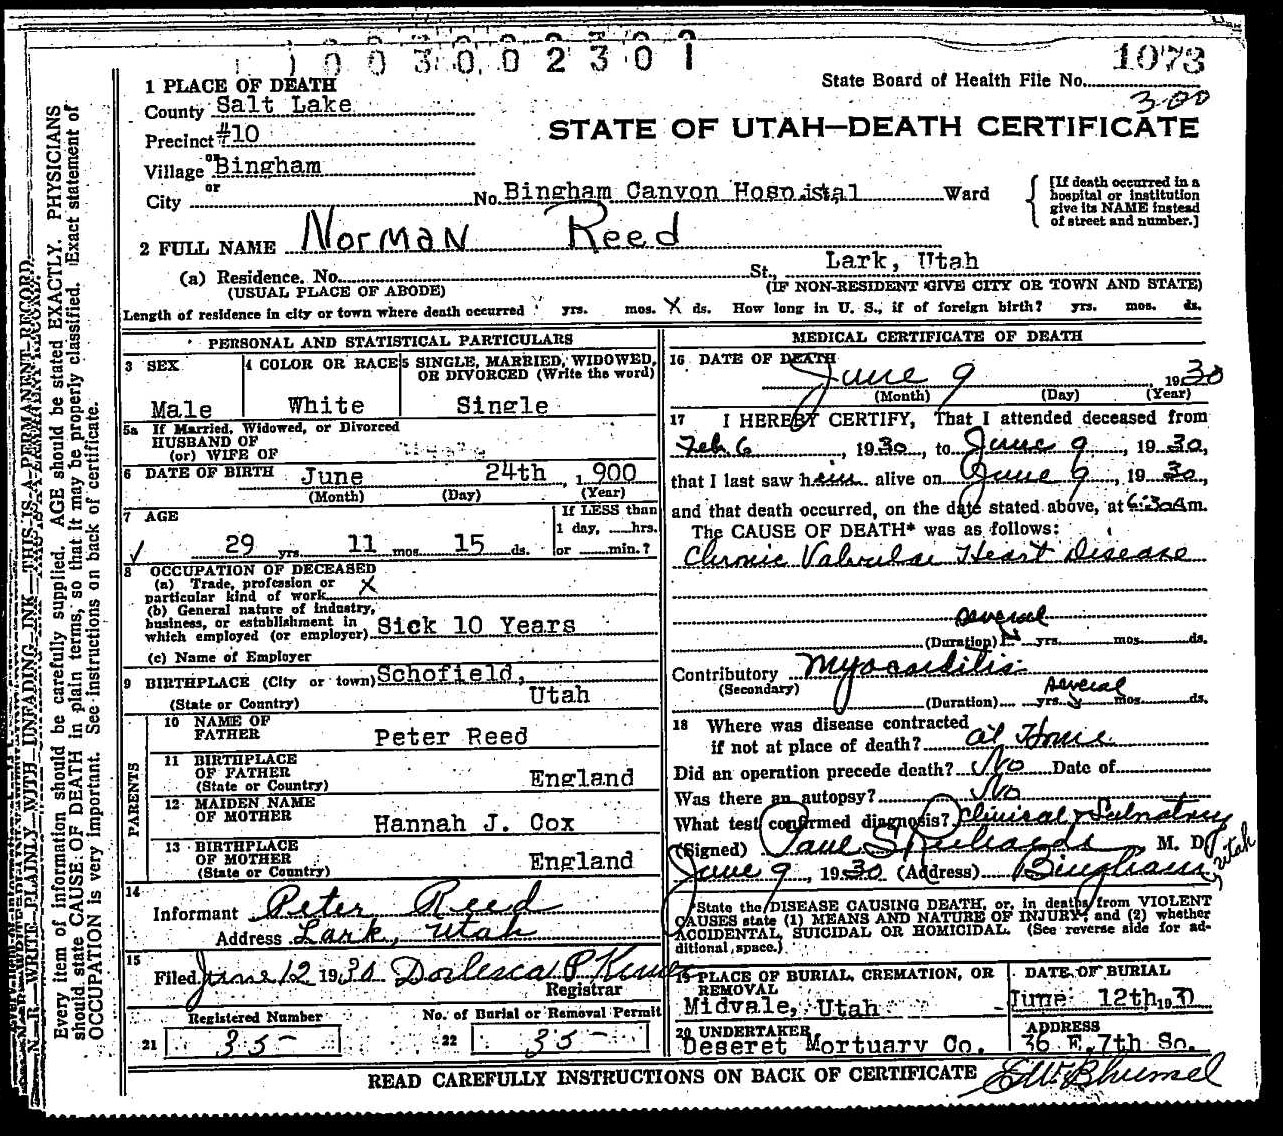 1003002301
1073
State Board of Health File No.
300
1 PLACE OF DEATH
County Salt Lake
Precinct #10
STATE OF UTAH—DEATH CERTIFICATE
or
Village Bingham
or
City No. Bingham Canyon Hospital Ward
[If death occurred in a
hospital or institution
give its NAME instead
of street and number.]
2 FULL NAME Norman Reed
(a) Residence. No. St., Lark, Utah
(USUAL PLACE OF ABODE) (IF NON-RESIDENT GIVE CITY OR TOWN AND STATE)
Length of residence in city or town where death occurred yrs. mos. X ds. How long in U. S., if of foreign birth? yrs. mos. ds.
PERSONAL AND STATISTICAL PARTICULARS
3 SEX
Male
4 COLOR OR RACE
White
5 SINGLE, MARRIED, WIDOWED,
OR DIVORCED (Write the word)
Single
5a If Married, Widowed, or Divorced
HUSBAND OF
(or) WIFE OF
6 DATE OF BIRTH June 24th, 1900
(Month) (Day) (Year)
7 AGE
29 yrs. 11 mos. 15 ds.
If LESS than
1 day, hrs.
or min.?
8 OCCUPATION OF DECEASED
(a) Trade, profession or
particular kind of work X
(b) General nature of industry,
business, or establishment in
which employed (or employer) Sick 10 Years
(c) Name of Employer
9 BIRTHPLACE (City or town) Schofield,
(State or Country) Utah
PARENTS
10 NAME OF
FATHER Peter Reed
11 BIRTHPLACE
OF FATHER
(State or Country) England
12 MAIDEN NAME
OF MOTHER Hannah J. Cox
13 BIRTHPLACE
OF MOTHER
(State or Country) England
14
Informant Peter Reed
Address Lark, Utah
15
Filed June 12 1930
Registrar
Registered Number
21 35
No. of Burial or Removal Permit
22 35
MEDICAL CERTIFICATE OF DEATH
16 DATE OF DEATH
June 9, 1930
(Month) (Day) (Year)
17 I HEREBY CERTIFY, That I attended deceased from
Feb 6, 1930, to June 9, 1930,
that I last saw him alive on June 9, 1930,
and that death occurred, on the date stated above, at 6:30 A m.
The CAUSE OF DEATH* was as follows:
Chronic Valvular Heart Disease
several
(Duration) yrs. mos. ds.
Contributory Myocarditis
(Secondary)
several
(Duration) yrs. mos. ds.
18 Where was disease contracted
if not at place of death? at Home
Did an operation precede death? No Date of
Was there an autopsy? No
What test confirmed diagnosis? Clinical & Laboratory
(Signed) Paul S Richards M. D.
June 9, 1930 (Address) Bingham, Utah
*State the DISEASE CAUSING DEATH, or, in deaths from VIOLENT
CAUSES state (1) MEANS AND NATURE OF INJURY; and (2) whether
ACCIDENTAL, SUICIDAL OR HOMICIDAL. (See reverse side for ad-
ditional space.)
19 PLACE OF BURIAL, CREMATION, OR
REMOVAL
Midvale, Utah
DATE OF BURIAL
June 12th 1930
20 UNDERTAKER
Deseret Mortuary Co.
ADDRESS
36 E. 7th So.
READ CAREFULLY INSTRUCTIONS ON BACK OF CERTIFICATE
N. B.—WRITE PLAINLY—WITH—UNFADING—INK—THIS—IS—A—PERMANENT—RECORD.
Every item of information should be carefully supplied. AGE should be stated EXACTLY. PHYSICIANS
should state CAUSE OF DEATH in plain terms, so that it may be properly classified. Exact statement of
OCCUPATION is very important. See instructions on back of certificate.